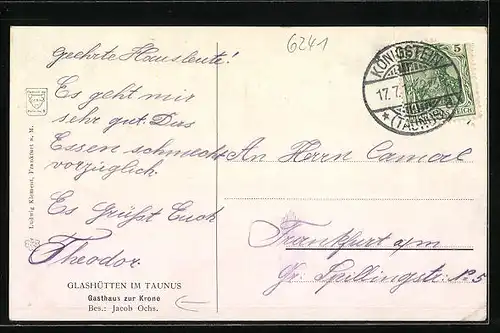 6241
Geehrte Hausleute!
Es geht mir
sehr gut. Das
Essen schmeckt
vorzüglich.
Es grüßt Euch
Theodor.
GLASHÜTTEN IM TAUNUS
Gasthaus zur Krone
Bes.: Jacob Ochs.
Ludwig Klement, Frankfurt a. M.
KÖNIGSTEIN
17.7.
*(TAUNUS)a
5
An Herrn Camal
Frankfurt a/m
Gr. Spillingstr. No 5